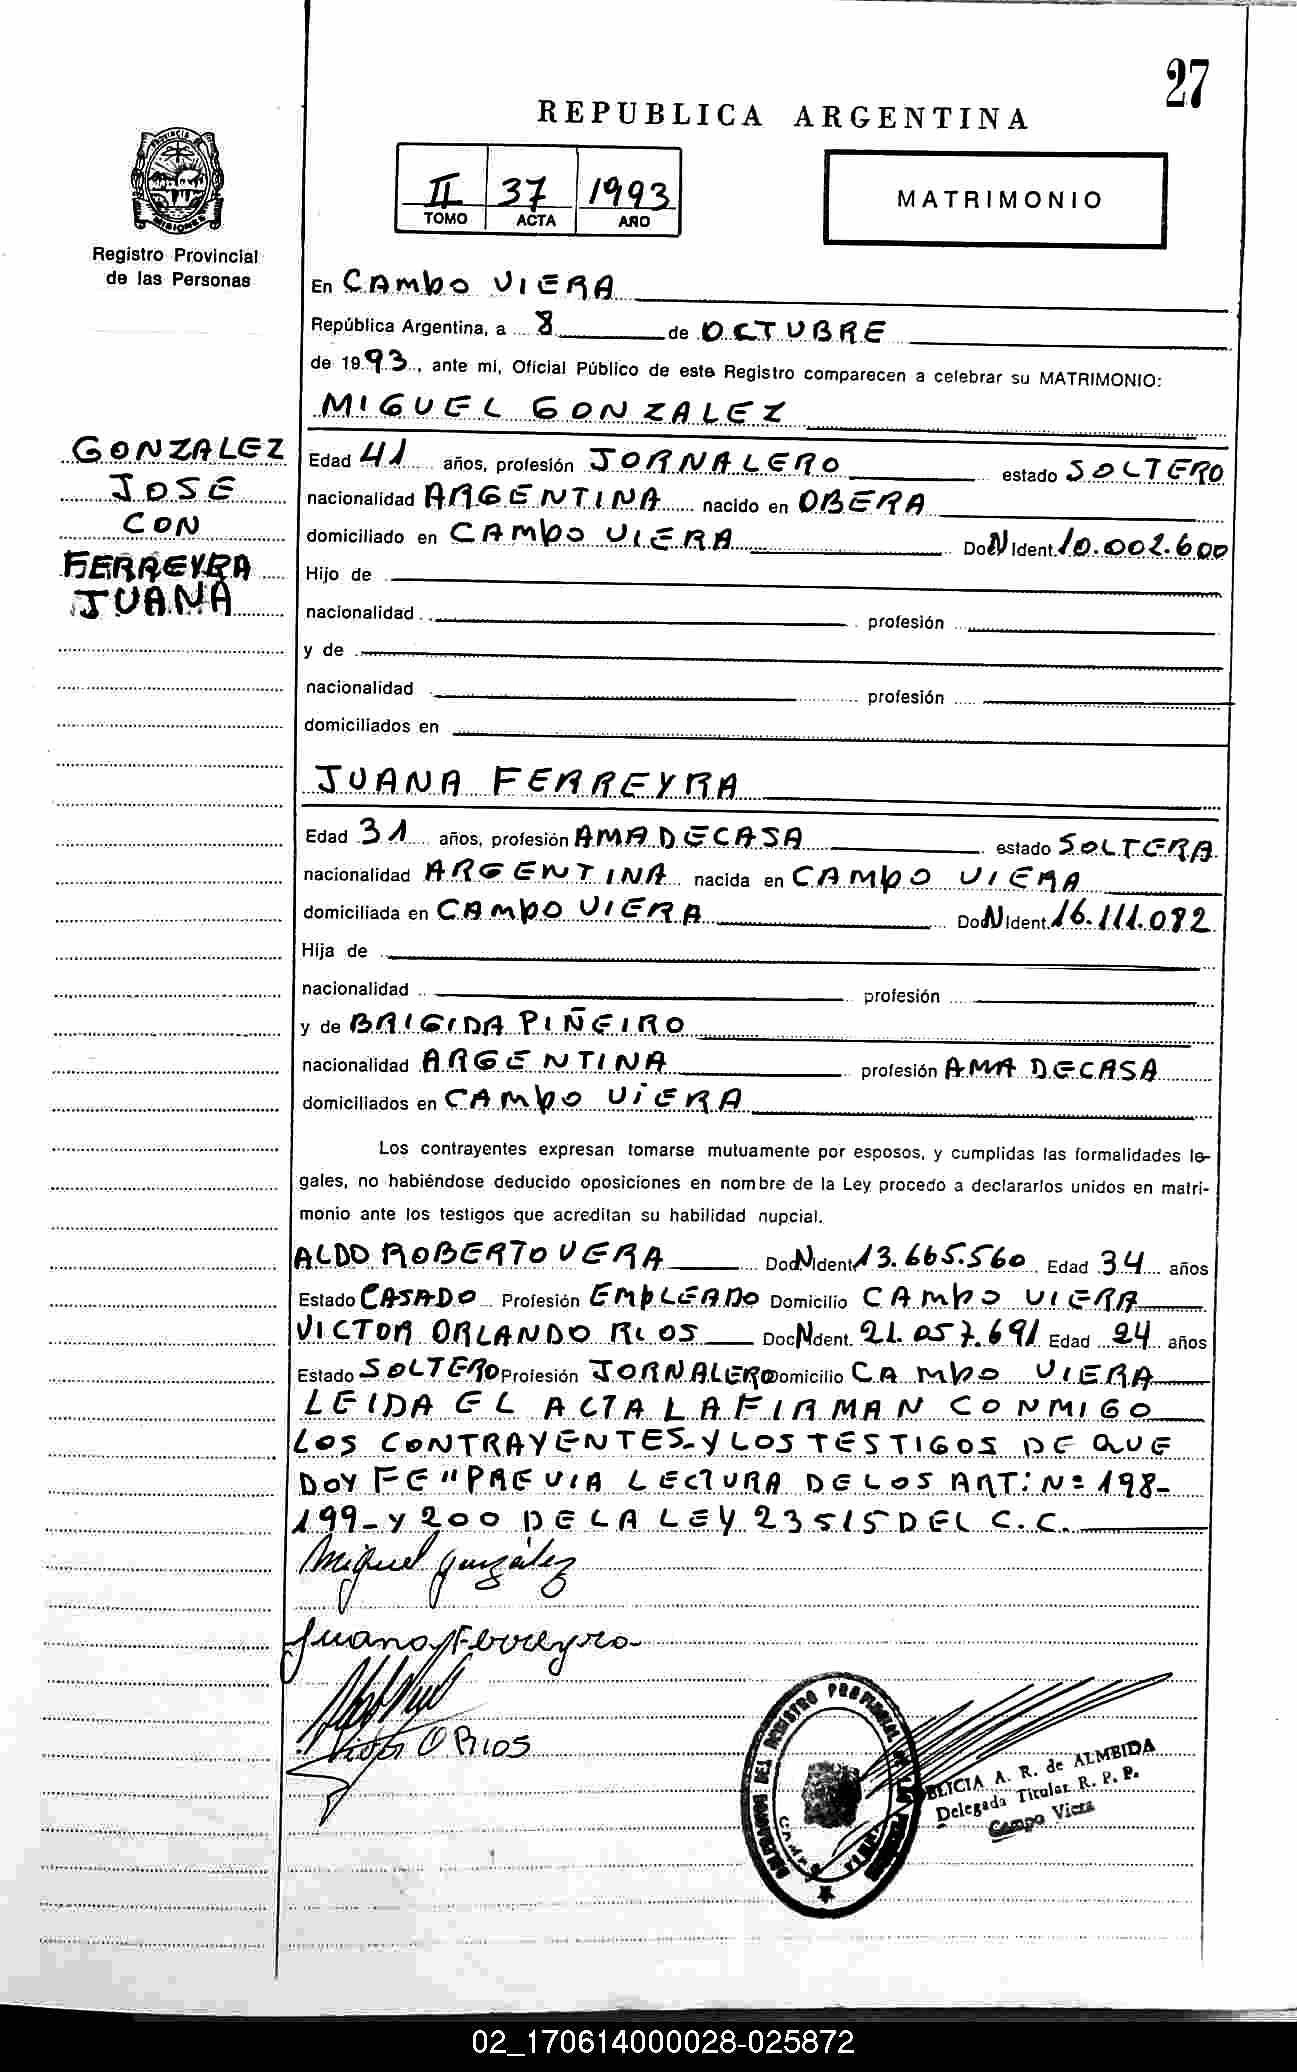 27
REPUBLICA ARGENTINA
PROVINCIA
MISIONES
Registro Provincial
de las Personas
II 37 1993
TOMO ACTA AÑO
MATRIMONIO
En CAMPO VIERA
República Argentina, a 8 de OCTUBRE
de 1993, ante mi, Oficial Público de este Registro comparecen a celebrar su MATRIMONIO:
MIGUEL GONZALEZ
GONZALEZ
JOSE
CON
FERREYRA
JUANA
Edad 41 años, profesión JORNALERO estado SOLTERO
nacionalidad ARGENTINA nacido en OBERA
domiciliado en CAMPO VIERA DocN Ident. 10.002.600
Hijo de
nacionalidad profesión
y de
nacionalidad profesión
domiciliados en
JUANA FERREYRA
Edad 31 años, profesión AMA DE CASA estado SOLTERA
nacionalidad ARGENTINA nacida en CAMPO VIERA
domiciliada en CAMPO VIERA DocN Ident. 16.111.082
Hija de
nacionalidad profesión
y de BRIGIDA PIÑEIRO
nacionalidad ARGENTINA profesión AMA DE CASA
domiciliados en CAMPO VIERA
Los contrayentes expresan tomarse mutuamente por esposos, y cumplidas las formalidades le-
gales, no habiéndose deducido oposiciones en nombre de la Ley procedo a declararlos unidos en matri-
monio ante los testigos que acreditan su habilidad nupcial.
ALDO ROBERTO VERA DocN Ident 13.665.560 Edad 34 años
Estado CASADO Profesión EMPLEADO Domicilio CAMPO VIERA
VICTOR ORLANDO RIOS DocN Ident. 21.057.691 Edad 24 años
Estado SOLTERO Profesión JORNALERO Domicilio CAMPO VIERA
LEIDA EL ACTA LA FIRMAN CONMIGO
LOS CONTRAYENTES-Y LOS TESTIGOS DE QUE
DOY FE "PREVIA LECTURA DE LOS ART: Nº 198-
199-Y 200 DE LA LEY 23515 DEL C.C.
Miguel González
Juana Ferreyra
Victor O RIOS
DEL REGISTRO PROVINCIAL DE LAS PERSONAS
CAMPO VIERA
A. R. de ALMEIDA
Delegada Titular R. P. P.
Campo Viera
02_170614000028-025872